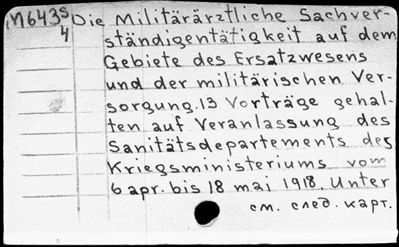 М643s Die Militärärztliche Sachver-
4 ständigentätigkeit auf dem
Gebiete des Ersatzwesens
und der militärischen Ver-
sorgung. 13 Vorträge gehal-
ten auf Veranlassung des
Sanitätsdepartements des
Kriegsministeriums vom
6 apr. bis 18 mai 1918. Unter
см. след. карт.